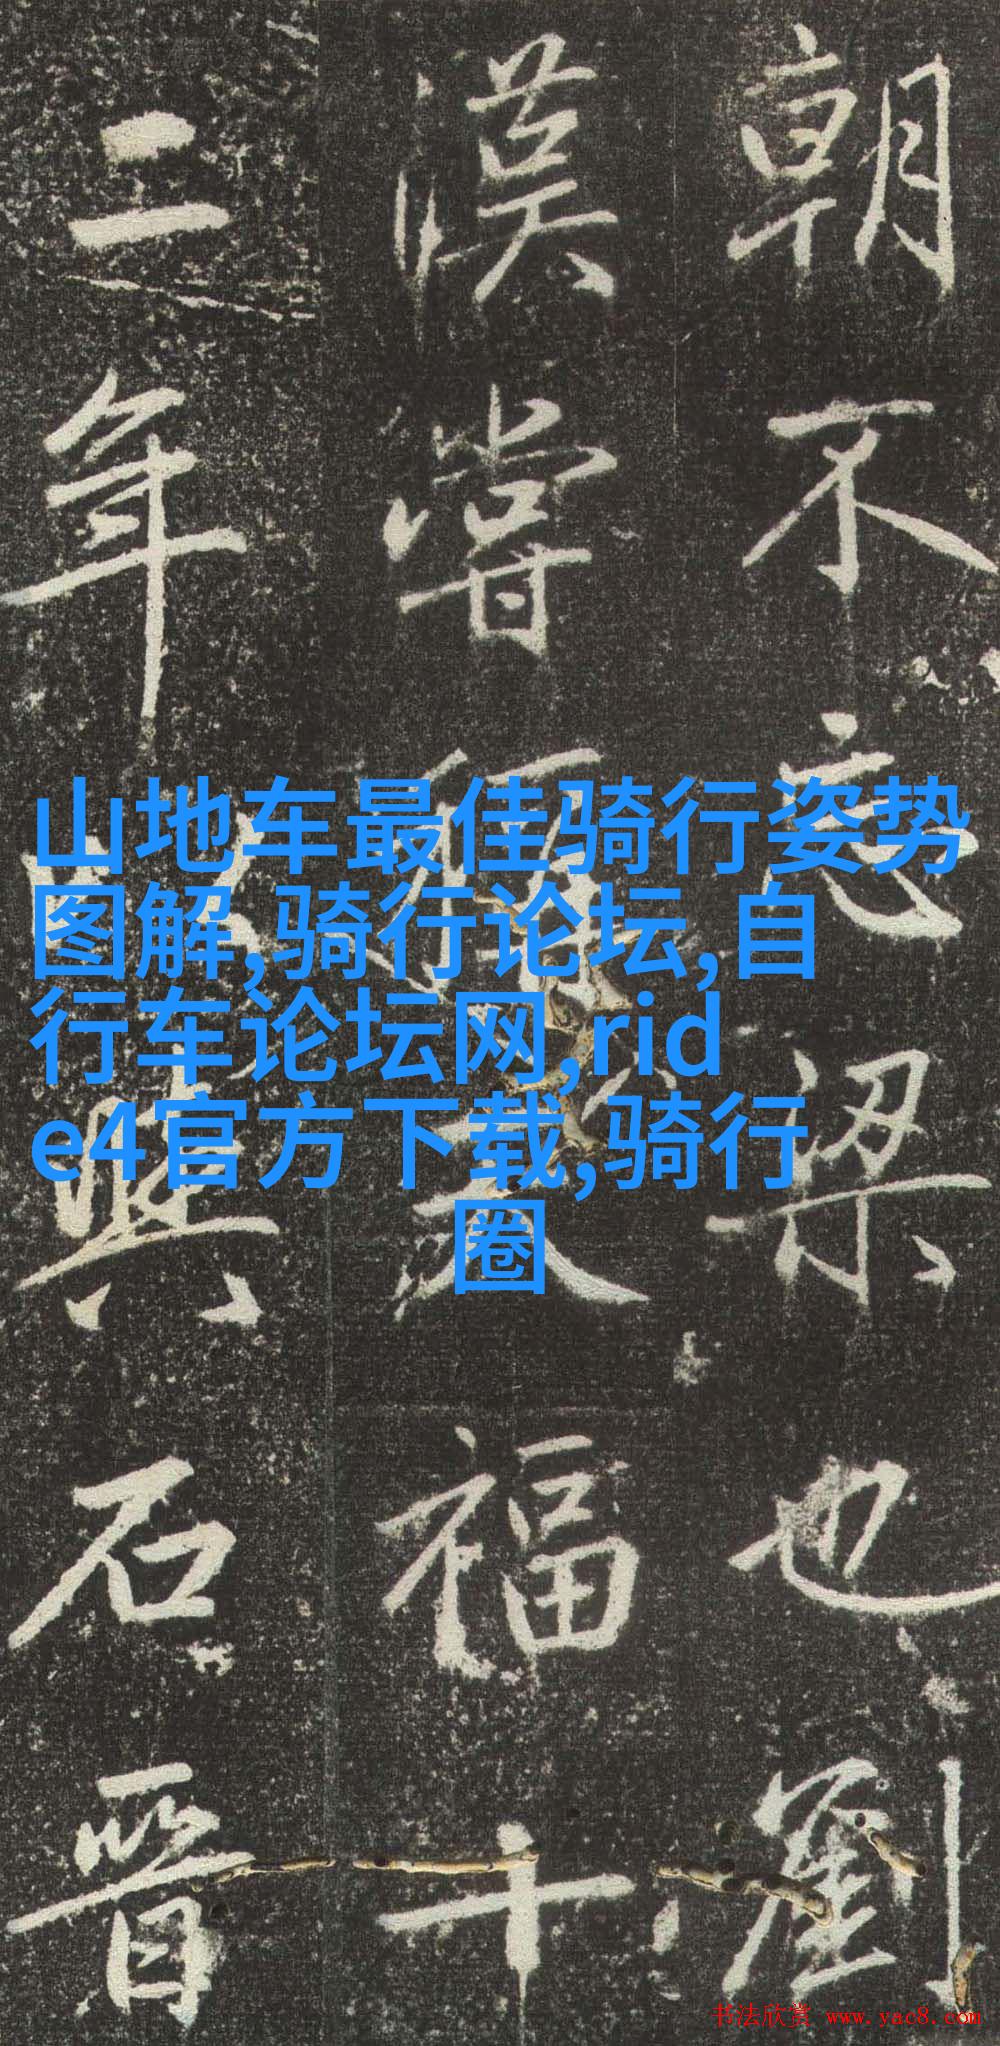 朝不忘梁也劉
漢嘗天福十
二年與石晉
山地车最佳骑行姿势
图解,骑行论坛,自
行车论坛网,rid
e4官方下载,骑行
圈
书法欣赏 www.yac8.com